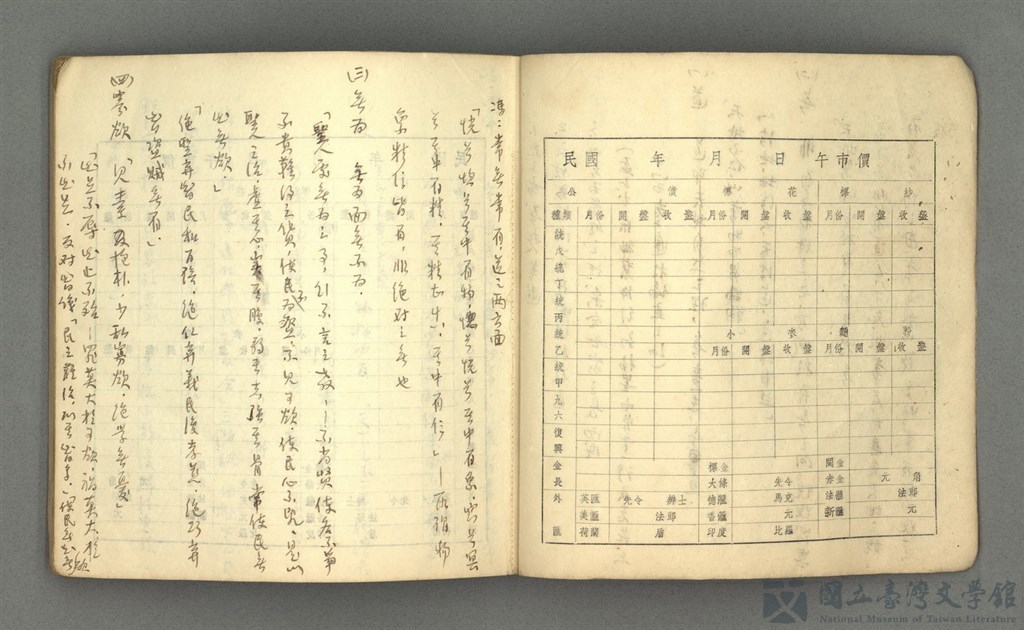 民國 年 月 日 午市價
公 債 標 花 標 紗
種類 月份 開盤 收盤 月份 開盤 收盤 月份 開盤 收盤
統
戊
統
丁
統
丙
統 小 麥 麵 粉
乙 月份 開盤 收盤 月份 開盤 收盤
統
甲
九
六
復
興
金 標金 關金
長 大條 先令 赤金 元 角
外 英匯 先令 辨士 德匯 馬克 法匯 法郎
美匯 法郎 香匯 元 新匯 元
匯 荷蘭 盾 印度 比羅
馮：常無常有，道之兩方面
「恍兮惚兮其中有物，惚兮恍兮其中有象，窈兮冥
兮其中有精，其精甚真，其中有信」—所謂物
象精信皆有，非絕对之無也
㈢ 無為 無為而無不為．
「聖人處無為之事，行不言之教」—不尚賢使民不爭
不貴難得之貨，使民不為盜，不見可欲，使民心不亂，是以
聖人之治虛其心，實其腹，弱其志，強其骨，常使民無
知無欲」
「絕聖棄智民利百倍，絕仁棄義民復孝慈，絕巧棄
利盜賊無有」
㈣ 寡欲 「見素抱朴，少私寡欲，絕學無憂」
「知足不辱 知止不殆—罪莫大於可欲，禍莫大於
不知足．反对智識「民之難治，以其智多，
國立臺灣文學館
National Museum of Taiwan Literature